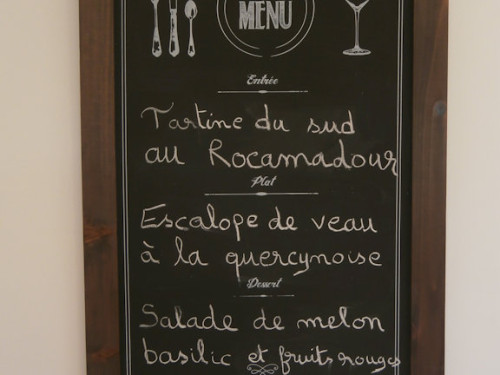 MENU
Entrée
Tartine du sud
au Rocamadour
Plat
Escalope de veau
à la quercynoise
Dessert
Salade de melon
basilic et fruits rouges